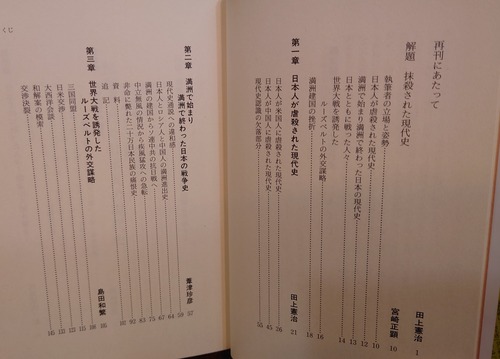 再刊にあたって 田上憲治 1
解題 抹殺された現代史 宮崎正顕 10
執筆者の立場と姿勢 10
日本人が虐殺された現代史 12
満洲で始まり満洲で終わった日本の現代史 13
日本とともに戦った人々 14
世界大戦を誘発した
ルーズベルトの外交謀略 16
満洲建国の挫折 18
第一章 日本人が虐殺された現代史 田上憲治 21
日本人が米国人に虐殺された現代史
日本人が中国人に虐殺された現代史 45
現代史認識の欠落部分 55
第二章 満洲で始まり
満洲で終わった日本の戦争史 葦津珍彦 57
現代史通説への違和感
日本人とロシア人と中国人の満洲進出史 64
満洲の建国からソ連中共の抗日戦へ 67
中立無風の情況から疾風猛攻への急転 75
非命に斃れた二十万日本民族の痛恨史
資料 92
追記
第三章 世界大戦を誘発した
ルーズベルトの外交謀略 島田和繁
三国同盟
日米交渉
大西洋会談
和解案の模索
交渉決裂
くじ